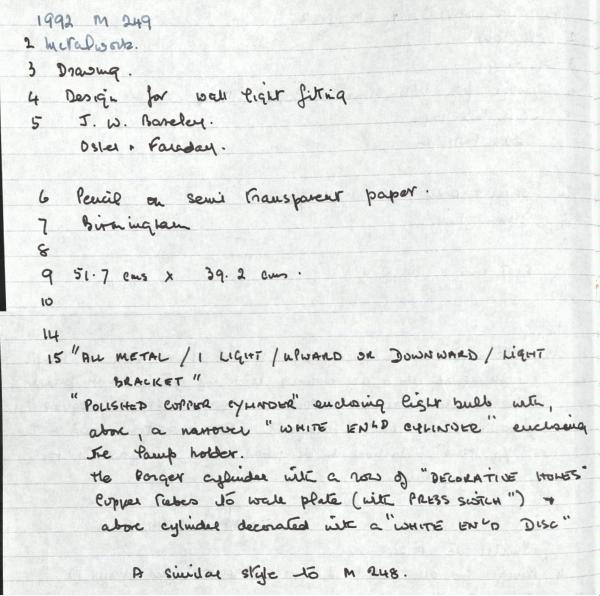 1992 M 249
2 Metalwork.
3 Drawing.
4 Design for wall light fitting
5 J. W. Bareley.
Osler & Faraday.
6 Pencil on semi transparent paper.
7 Birmingham
8
9 51.7 cms x 39.2 cms.
10
14
15 "ALL METAL / 1 LIGHT / UPWARD OR DOWNWARD / LIGHT
BRACKET"
"POLISHED COPPER CYLINDER" enclosing light bulb with,
above, a narrower "WHITE EN'LD CYLINDER" enclosing
the lamp holder.
The larger cylinder with a row of "DECORATIVE HOLES"
Copper tubes to wall plate (with PRESS SWITCH") &
above cylinder decorated with a "WHITE EN'LD DISC"
A similar style to M 248.